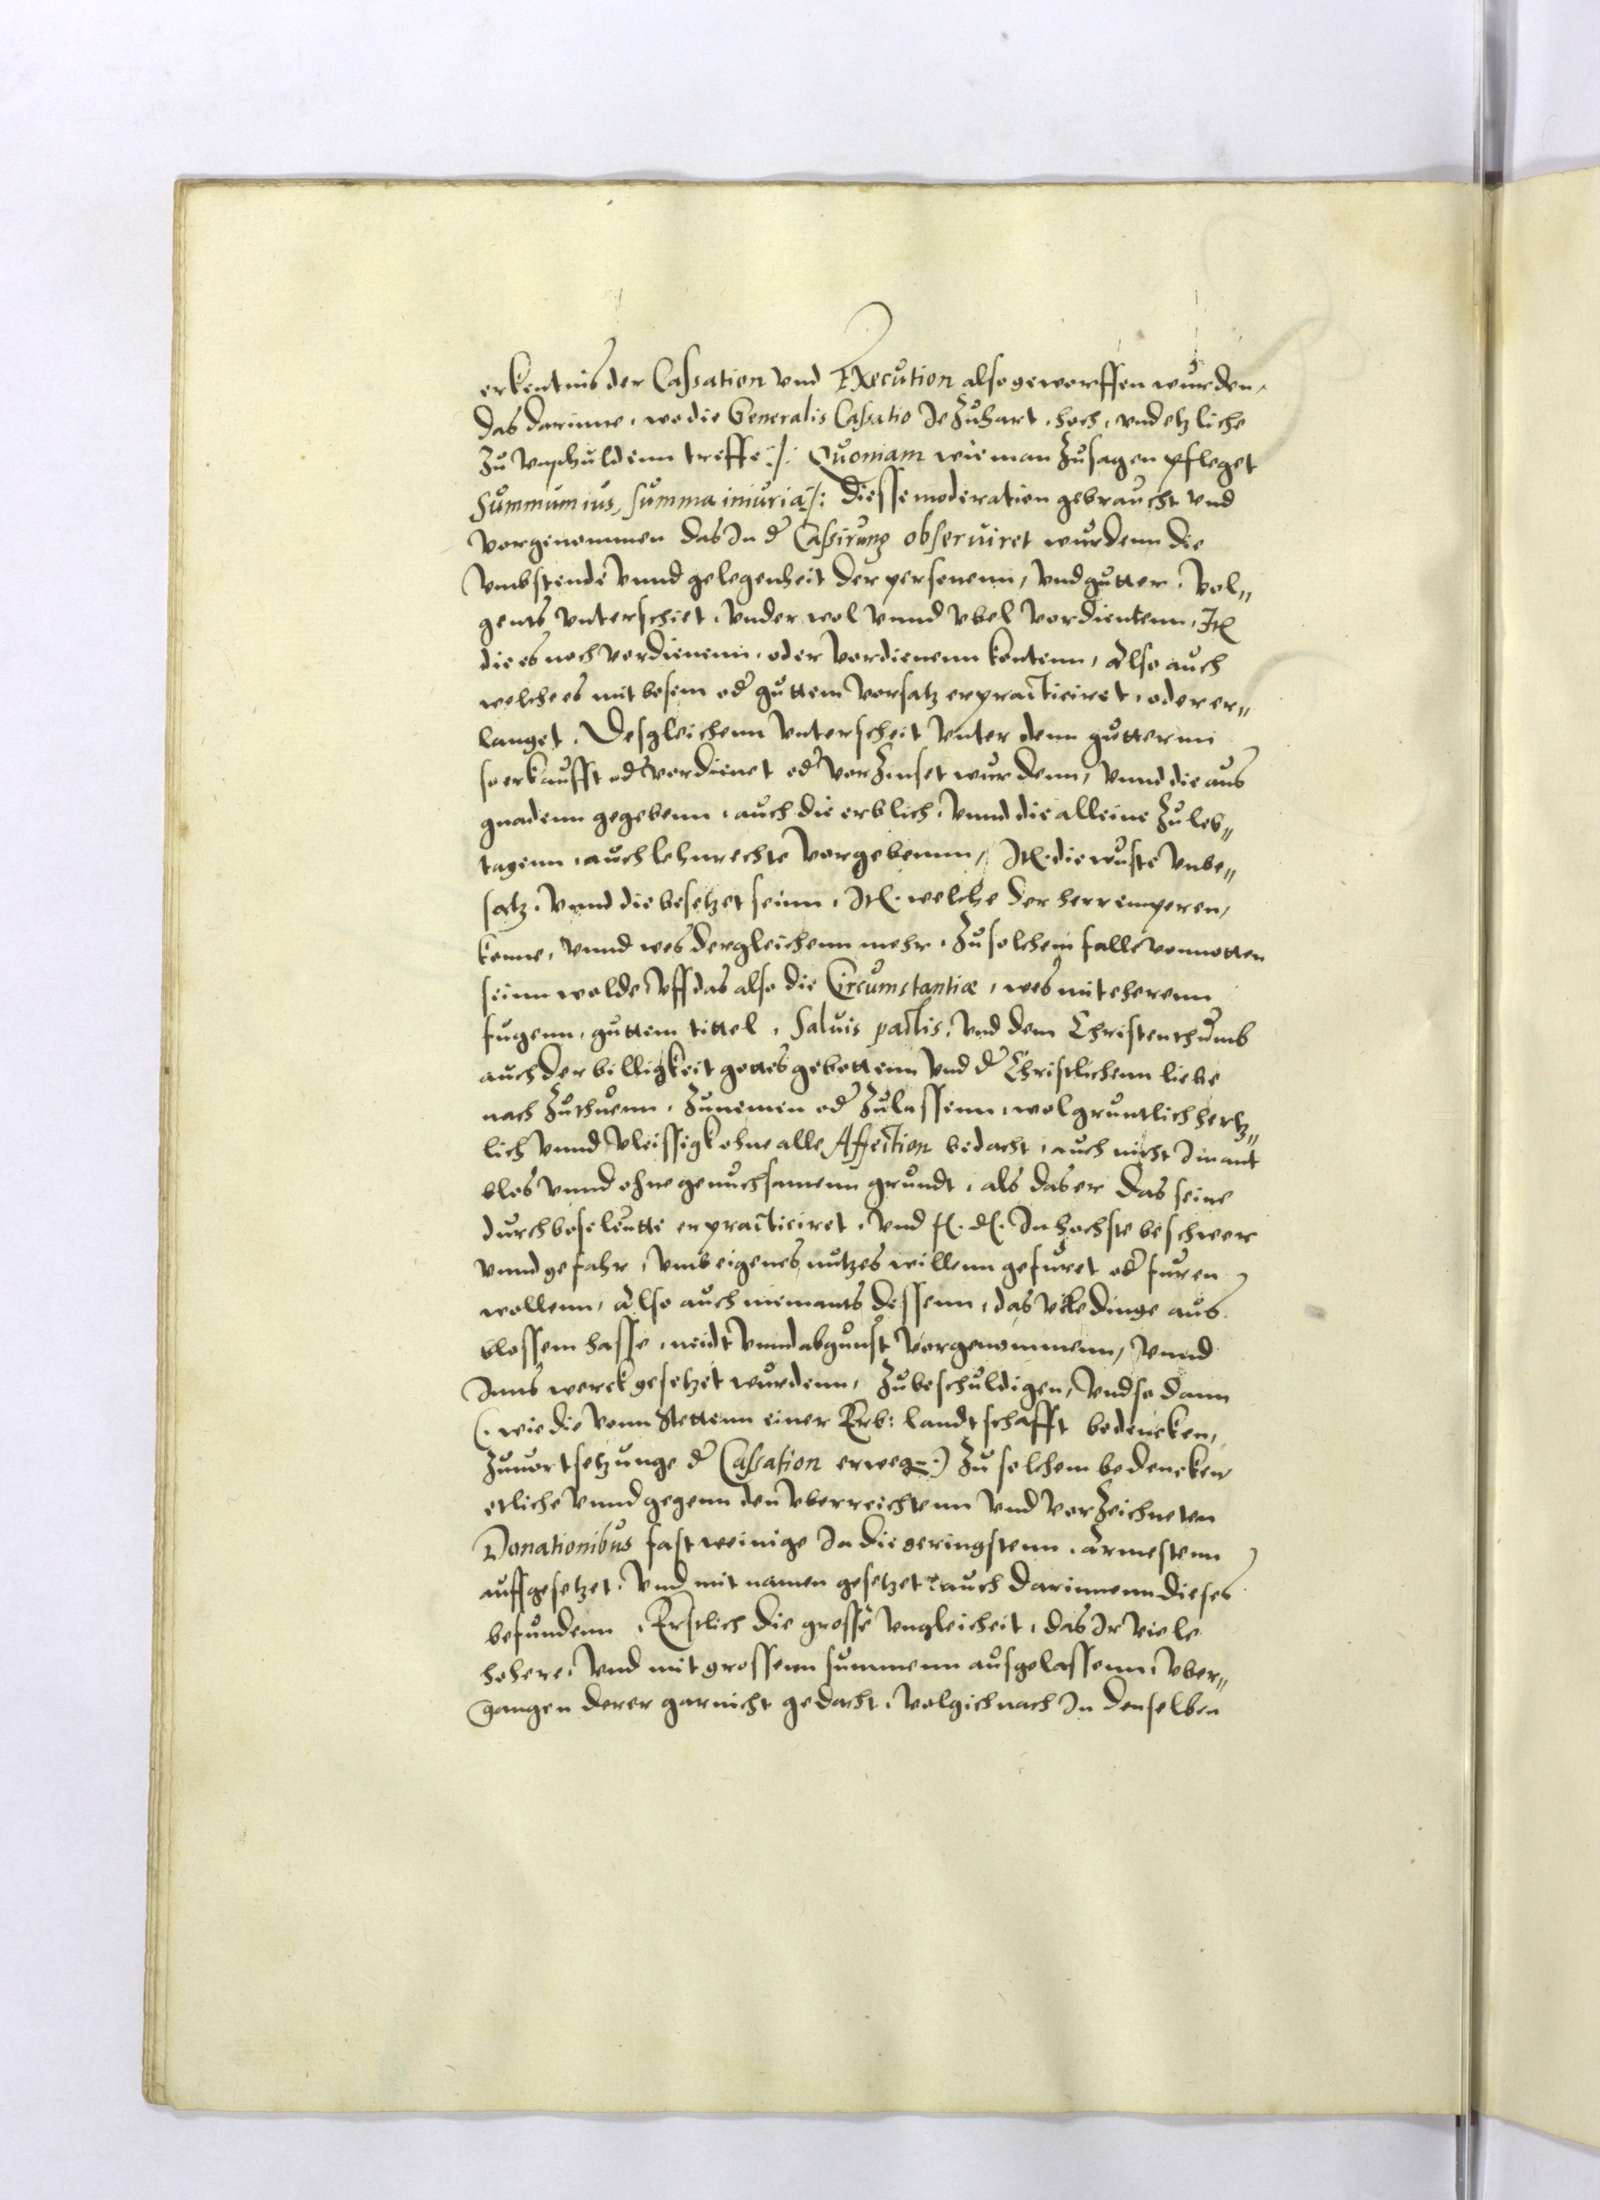 erkentnis der Cassation vnd Execution also geworffen wurden,
das darinne, wo die Generalis Cassatio Je zuhart, hoch, vnd etzliche
zu vnschuldenn treffe :/: Quoniam wie man zusagen pfleget
Summum ius, summa iniuria :/: diesse moderation gebraucht vnd
vorgenommen das In der Cassirung obseruiret wurdenn die
vmbstende vnnd gelegenheit der personenn, vnd gutter, vol„
gents vnterschiet, vnder wol vnnd vbel vordientenn, Itē
die es noch vordienenn, oder vordienenn kontenn, Also auch
welche es mit bosem oder guttem vorsatz erpracticiret, oder er„
langet. Desgleichenn vnterscheit vnter denn gutternn
so erkaufft oder vordienet oder vorzinset wurdenn, vnnd die aus
gnadenn gegebenn, auch die erblich, vnnd die alleine zu leb„
tagenn, auch lehnrechte vorgebenn, Itē. die wuste vnbe„
satz, vnnd die besetzet seinn, Itē. welche der herr emperen,
konne, vnnd wes dergleichenn mehr, zu solchem falle vonnotten
seinn wolde, vff das also die Circumstantiæ, wes mit eherenn
fugenn, guttem tittel, Saluis pactis, vnd dem Christenthumb
auch der billigkeit gottes gebottenn vnd der Christlichenn liebe
nach zuthuenn, zunemen oder zulassenn, wol gruntlich hertz„
lich vnnd vleissigk ohne alle Affection bedacht, auch nicht Imant
blos vnnd ohne genuchsamenn grundt, als das er das seine
durch bose leutte erpracticiret, vnd f. d. In hochste beschwer
vnnd gefahr, vmb eigenes nutzes willenn gefuret oder furen
wollenn, Also auch niemants dessenn, das dinge aus
blossem hasse, neidt vnnd abgunst vorgenommenn, vnnd
Inns werck gesetzet wurdenn, zubeschuldigen, vnd so dann
(. wie die vonn Stettenn einer Erb: landtschafft bedencken,
zuuortsetzunge der Cassation erweg .) zu solchem bedencken
etliche vnnd gegenn den vberreichtenn vnd vorzeichneten
Donationibus fast weinige In die geringstenn, Armestenn
auffgesetzet, vnd mit namen gesetzet, auch darinnenn dieses
befundenn, Erstlich die grosse vngleicheit, das Ir viele
hohere, vnd mit grossenn summenn ausgelassenn, vber„
gangen derer garnicht gedacht, volgich nach In denselben